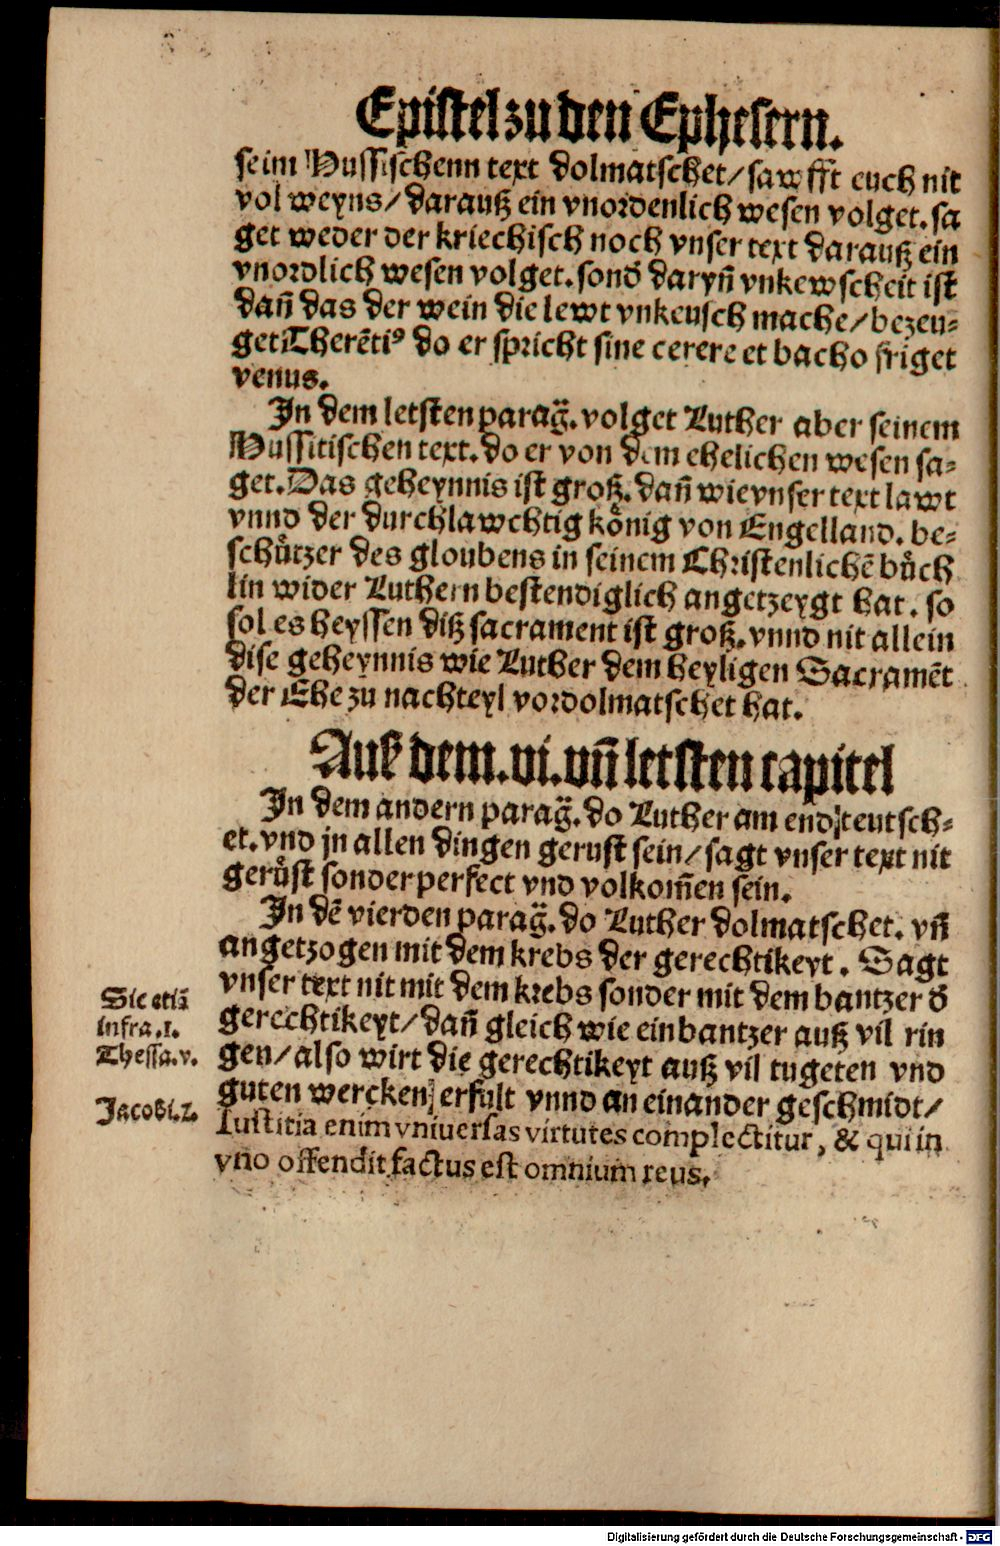 Epistel zu den Ephesern.
seim Hussischenn text dolmatschet/ sawfft euch nit
vol weyns/ darauß ein vnordenlich wesen volget. sa
get weder der kriechisch noch vnser text darauß ein
vnordlich wesen volget. sond̄ daryn̄ vnkewscheit ist
dan̄ das der wein die lewt vnkeusch mache/ bezeu⸗
get Therēti⁹ do er spricht sine cerere et bacho friget
venus.
In dem letsten parag̃. volget Luther aber seinem
Hussitischen text. do er von dem ehelichen wesen sa⸗
get. Das geheynnis ist groß. dan̄ wie vnser text lawt
vnnd der durchlawchtig kȯnig von Engelland. be⸗
schůtzer des gloubens in seinem Christenlichē bůch
lin wider Luthern bestendiglich angetzeygt hat. so
sol es heyssen diß sacrament ist groß. vnnd nit allein
dise geheynnis wie Luther dem heyligen Sacramēt
der Ehe zu nachteyl vordolmatschet hat.
Auß dem. vi. vn̄ letsten capitel
In dem andern parag̃. do Luther am end teutsch⸗
et. vnd jn allen dingen gerust sein/ sagt vnser text nit
gerůst sonder perfect vnd volkom̄en sein.
In dē vierden parag̃. do Luther dolmatschet. vn̄
angetzogen mit dem krebs der gerechtikeyt. Sagt
vnser text nit mit dem krebs sonder mit dem bantzer d̄
gerechtikeyt/ dan̄ gleich wie ein bantzer auß vil rin
gen/ also wirt die gerechtikeyt auß vil tugeten vnd
guten wercken erfult vnnd an einander geschmidt/
Iustitia enim vniuersas virtutes complectitur, & qui in
vno offendit factus est omnium reus.
Sic etiā
infra. 1.
Thessa. v.
Jacobi. 2.
Digitalisierung gefördert durch die Deutsche Forschungsgemeinschaft - DFG